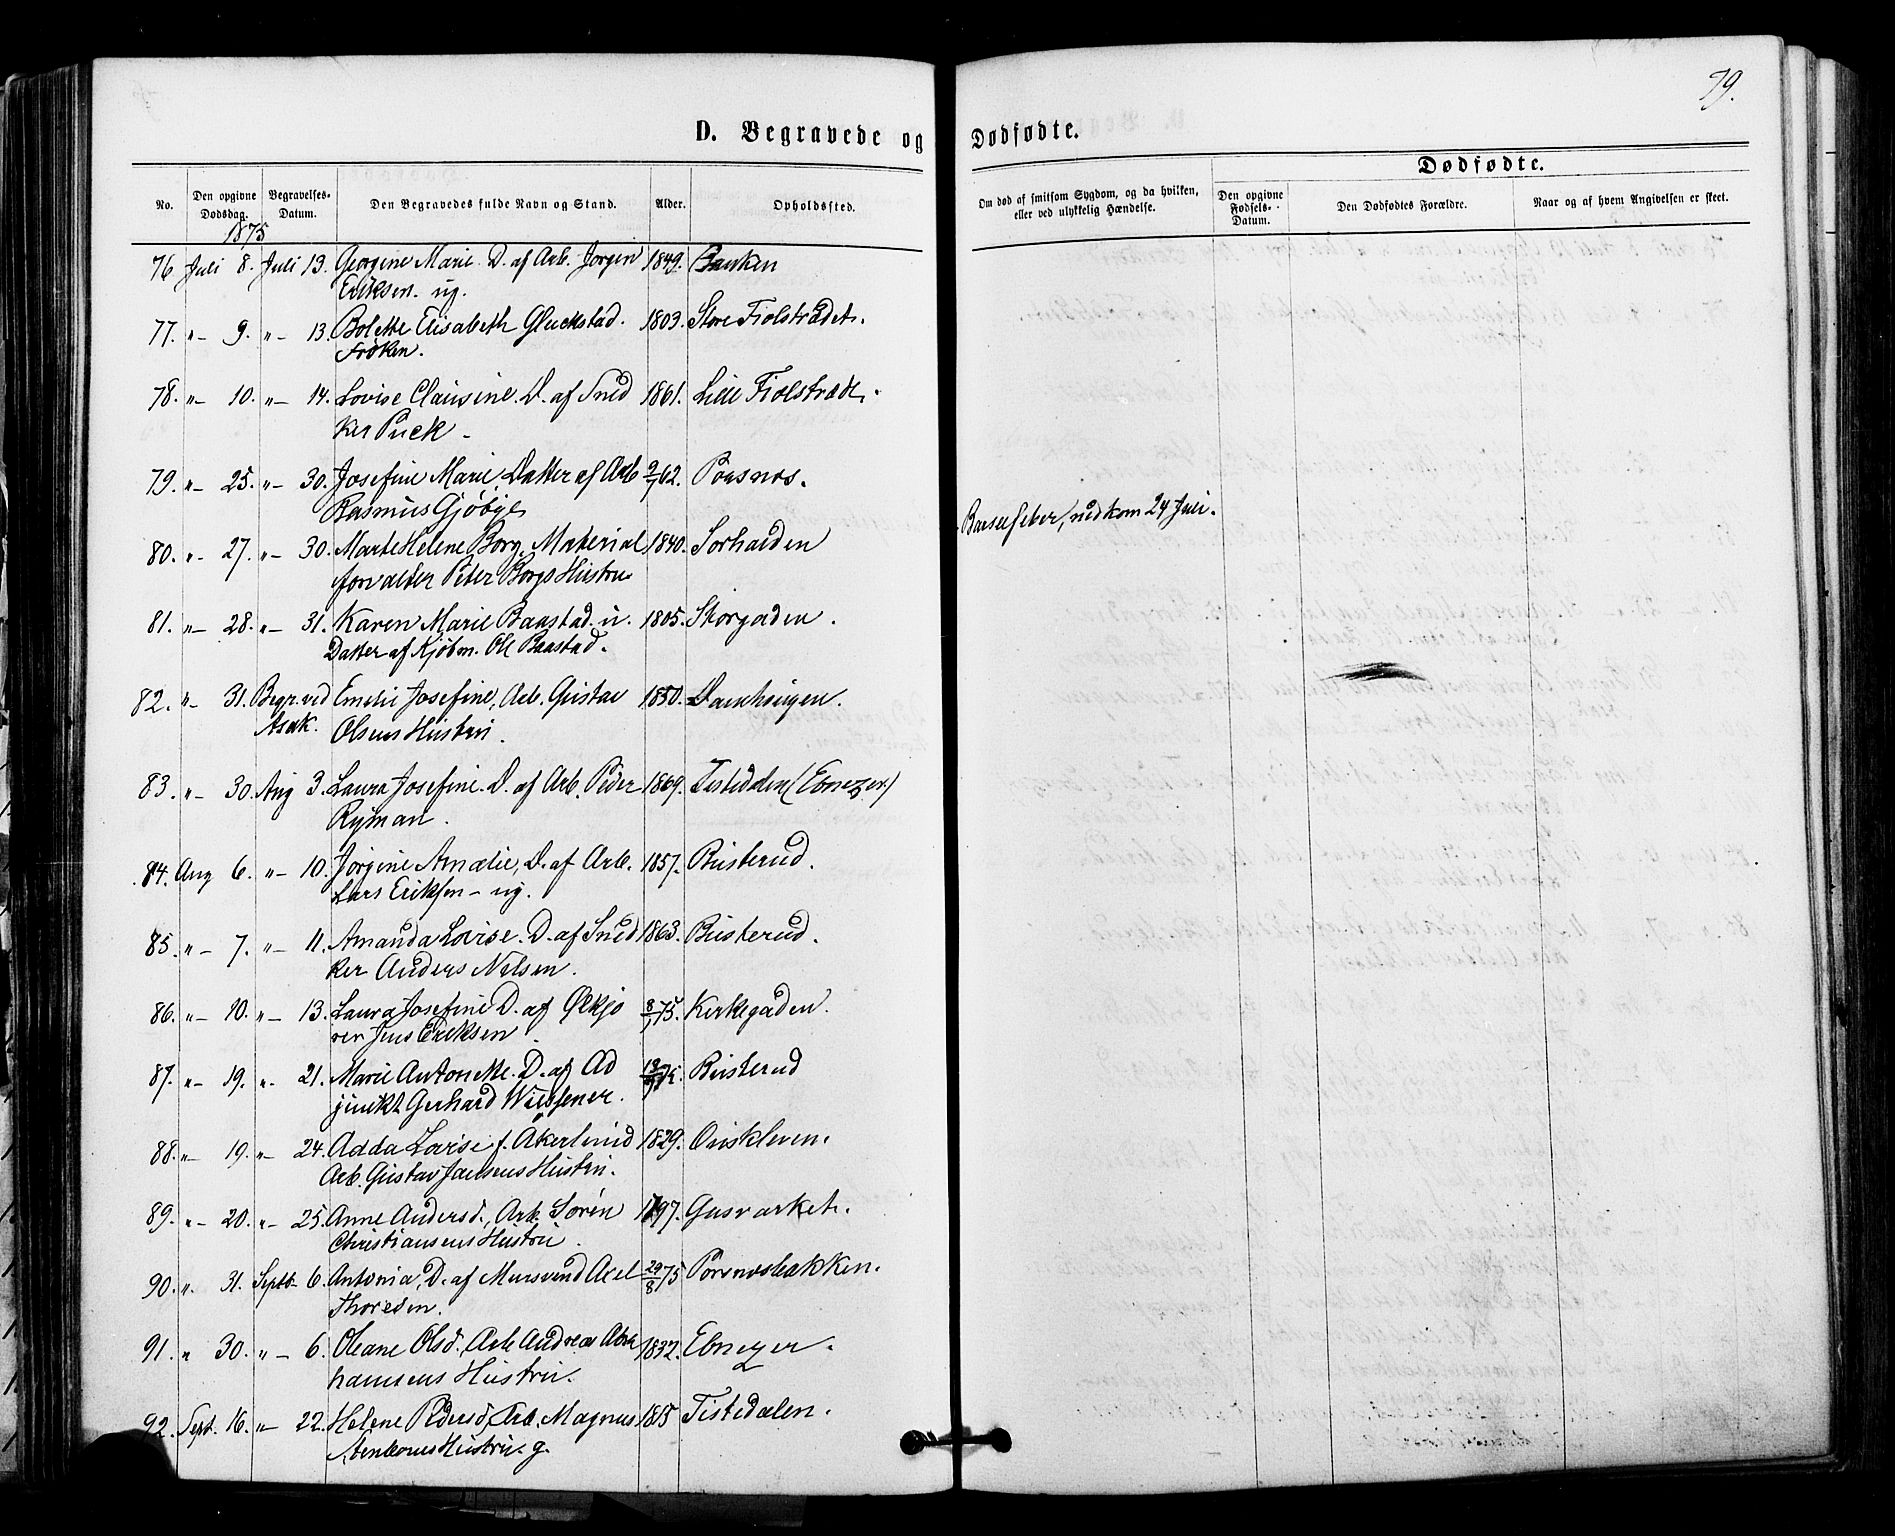 79.
D. Begravede og Dødfødte.
Dødfødte.
No. Den opgivne Dødsdag. Begravelses-Datum. Den Begravedes fulde Navn og Stand. Alder. Opholdssted. Om død af smitsom Sygdom, og da hvilken, eller ved ulykkelig Hændelse. Den opgivne Fødsels-Datum. Den Dødfødtes Forældre. Naar og af hvem Angivelsen er skeet.
1875
76 Juli 8. Juli 13. Georgine Marie D. af Arb. Jørgen 1849. Banken
Eriksen. ug.
77. " — 9. " — 13. Bolette Elisabeth Gluckstad. 1803. Store Fiolstrædet.
Frøken.
78. " — 10. " — 14. Lovise Clausine. D. af Sned 1861. Lille Fiolstræde.
ker Puck —
79. " — 25. " — 30. Josefine Marie, Datter af Arb 9/1 62. Porsnes.
Rasmus Gjøbye
80. " — 27. " — 30. Marte Helene Borg, Material 1840. Sørhalden Barselfeber, nedkom 24 Juli.
forvalter Peter Borgs Hustru
81. " — 28. " — 31. Karen Marie Baastad. u. 1805. Storgaden.
Datter af Kjøbm. Ole Baastad.
82. " — 31. Begr. ved Emelie Josefine, Arb. Gustav 1850. Damhaugen.
Asak. Olsens Hustru.
83. " — 30. Aug 3. Laura Josefine. D. af Arb. Peder 1869. Tistedalen (Ebnezer)
Ryman.
84. Aug 6. " — 10. Jørgine Amalie, D. af Arb. 1857. Busterud.
Lars Eriksen — ug.
85. " — 7. " — 11. Amanda Lovise. D. af Sned 1863. Busterud.
ker Anders Nilsen.
86. " — 10. " — 13. Laura Josefine D. af Ølkjø 8/1 75. Kirkegaden.
rer Jens Eriksen.
87. " — 19. " — 21. Marie Antonette. D. af Ad 75. Busterud
junkt Gerhard Wiessener.
88. " — 19. " — 24. Adda Lovise f. Åkerlund 1829. Oreskleven.
Arb. Gustav Jansens Hustru.
89. " — 20. " — 25. Anne Andersd., Arb. Søren 1797. Gasværket.
Christiansens Hustru.
90. " 31. Septb 6. Antonia, D. af Mursvend Axel 29/8 75 Porsnesbakken.
Thoresen.
91. " 30. " — 6. Oleane Olsd., Arb Andreas Abra 1832. Ebnezer.
hamsens Hustru.
92. Sept. 16. " — 22. Helene Pedersd., Arb. Magnus 1815 Tistedalen.
Stenkorns Hustru. g.